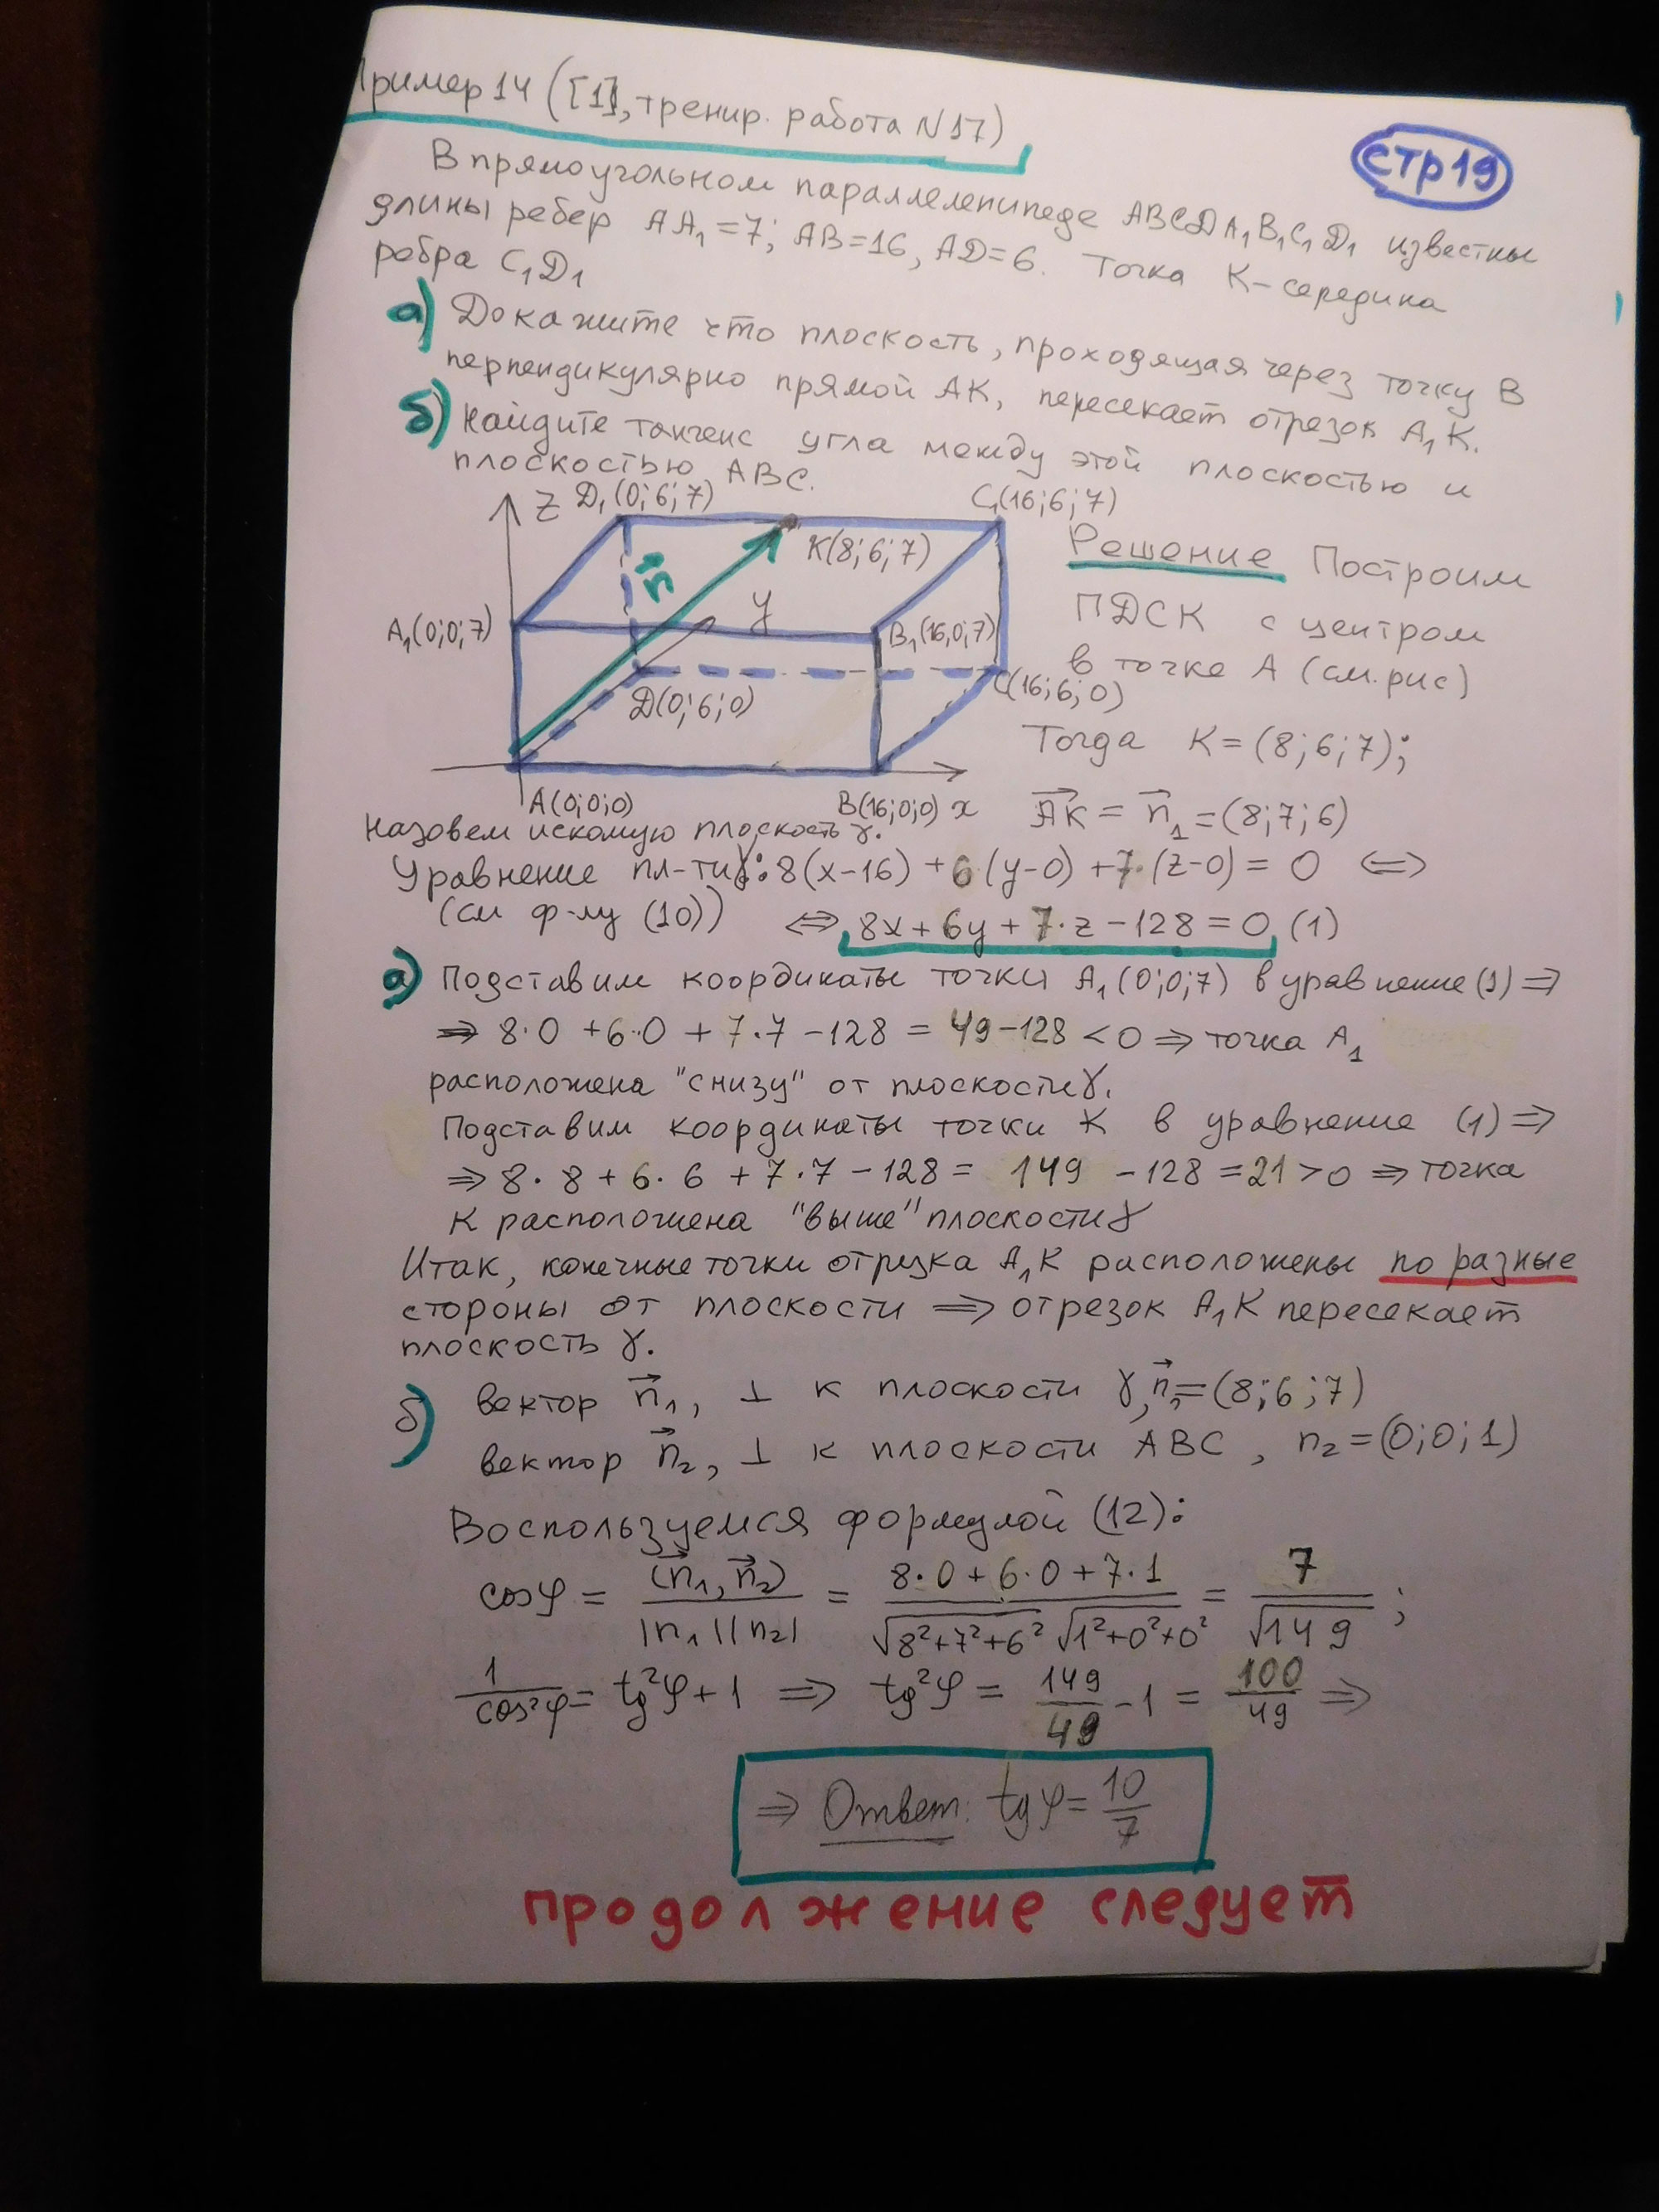 Пример 14 ([1], тренир. работа N17)
стр 19
В прямоугольном параллелепипеде ABCDA₁B₁C₁D₁ известны
длины ребер AA₁=7; AB=16, AD=6. Точка K-середина
ребра C₁D₁
а) Докажите что плоскость, проходящая через точку B
перпендикулярно прямой AK, пересекает отрезок A₁K.
б) Найдите тангенс угла между этой плоскостью и
плоскостью ABC.
z D₁(0;6;7) C₁(16;6;7)
K(8;6;7)
n⃗
A₁(0;0;7) y B₁(16;0;7)
D(0;6;0) C(16;6;0)
A(0;0;0) B(16;0;0) x
Решение Построим
ПДСК с центром
в точке A (см. рис)
Тогда K=(8;6;7);
A⃗K⃗ = n⃗₁=(8;7;6)
Назовем искомую плоскость γ.
Уравнение пл-ти γ: 8(x-16)+6(y-0)+7·(z-0)=0 ⇔
(см ф-лу (10)) ⇔ 8x+6y+7·z-128=0 (1)
а) Подставим координаты точки A₁(0;0;7) в уравнение (1) ⇒
⇒ 8·0+6·0+7·7-128 = 49-128<0 ⇒ точка A₁
расположена "снизу" от плоскости γ.
Подставим координаты точки K в уравнение (1) ⇒
⇒ 8·8+6·6+7·7-128= 149 -128=21>0 ⇒ точка
K расположена "выше" плоскости γ
Итак, конечные точки отрезка A₁K расположены по разные
стороны от плоскости ⇒ отрезок A₁K пересекает
плоскость γ.
б) вектор n⃗₁, ⊥ к плоскости γ, n⃗₁=(8;6;7)
вектор n⃗₂, ⊥ к плоскости ABC, n₂=(0;0;1)
Воспользуемся формулой (12):
cosφ = (n⃗₁, n⃗₂)/|n₁||n₂| = 8·0+6·0+7·1/√8²+7²+6² √1²+0²+0² = 7/√149;
1/cos²φ = tg²φ+1 ⇒ tg²φ = 149/49 -1 = 100/49 ⇒
⇒ Ответ: tgφ=10/7
продолжение следует